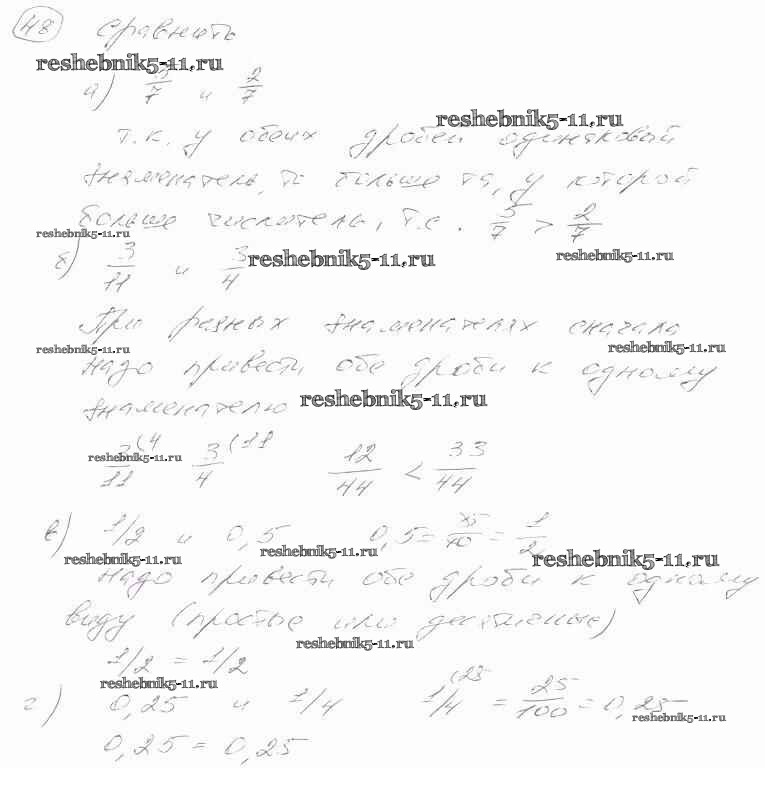 48 Сравнить
reshebnik5-11.ru
а) 5/7 и 2/7
reshebnik5-11.ru
т.к. у обеих дробей одинаковый
знаменатель, то больше та, у которой
больше числитель, т.е. 5/7 > 2/7
reshebnik5-11.ru
б) 3/11 и 3/4 reshebnik5-11.ru reshebnik5-11.ru
При разных знаменателях сначала
reshebnik5-11.ru reshebnik5-11.ru
надо привести обе дроби к одному
знаменателю reshebnik5-11.ru
3/11 (4 3/4 (11 12/44 < 33/44
reshebnik5-11.ru
в) 1/2 и 0,5 0,5 = 5/10 = 1/2
reshebnik5-11.ru reshebnik5-11.ru reshebnik5-11.ru
надо привести обе дроби к одному
виду (простые или десятичные)
reshebnik5-11.ru
1/2 = 1/2
reshebnik5-11.ru
г) 0,25 и 1/4 1/4 (25 = 25/100 = 0,25
reshebnik5-11.ru
0,25 = 0,25